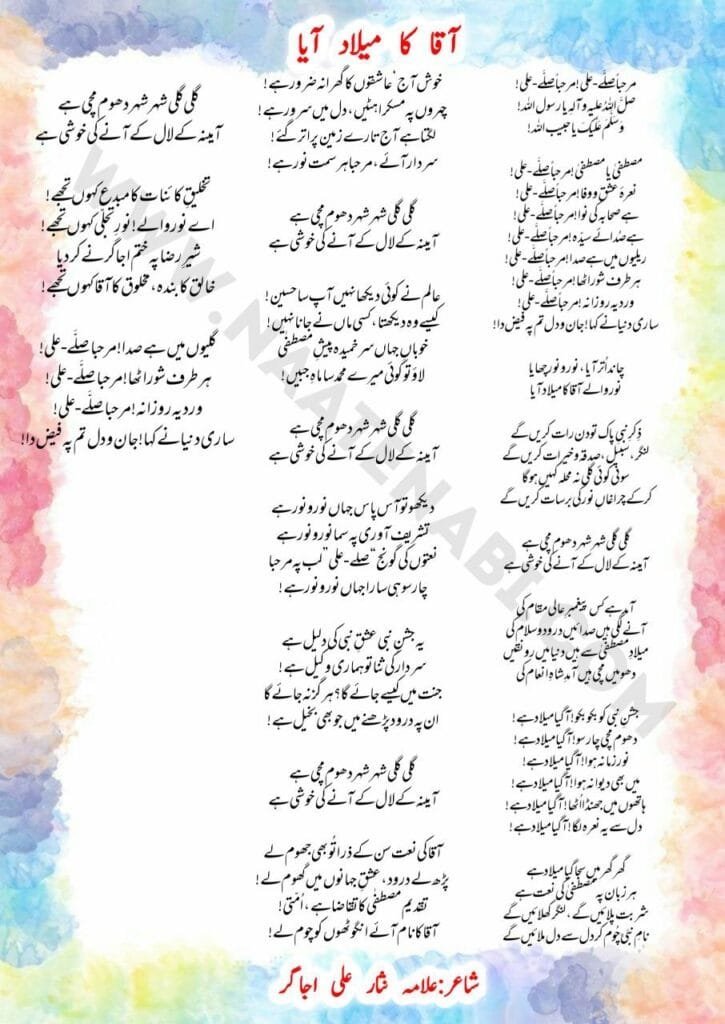 آقا کا میلاد آیا
مرحبا صلَّے-علی! مرحبا صلَّے-علی!
صلَّ اللهُ علیہ و آلہٖ یا رسول اللہ!
وسلَّمَ علیکَ یا حبیب اللہ!
مصطفیٰ یا مصطفیٰ! مرحبا صلَّے-علی!
نعرۂ عشق و وفا! مرحبا صلَّے-علی!
ہے صحابہ کی نوا! مرحبا صلَّے-علی!
ہے صدائے سیّدہ! مرحبا صلَّے-علی!
ریلیوں میں ہے صدا! مرحبا صلَّے-علی!
ہر طرف شور اٹھا! مرحبا صلَّے-علی!
ورد یہ روزانہ! مرحبا صلَّے-علی!
ساری دنیا نے کہا! جان و دل تم پہ فیض دا!
چاند اُتر آیا، نور و نور چھایا
نور والے آقا کا میلاد آیا
ذِکرِ نبی پاک تو دن رات کریں گے
لنگر، سبیل، صدقہ و خیرات کریں گے
سونی کوئی گلی نہ محلہ کہیں ہوگا
کر کے چراغاں نور کی برسات کریں گے
گلی گلی شہر شہر دھوم مچی ہے
آمینہ کے لال کے آنے کی خوشی ہے
آمد ہے کس پیغمبرِ عالی مقام کی
آنے لگی ہیں صدائیں درود و سلام کی
میلادِ مصطفیٰ سے ہیں دنیا میں رونقیں
دھومیں مچی ہیں آمدِ شاہِ انعام کی
جشنِ نبی کو بکو بکو! آ گیا میلاد ہے!
دھوم مچی چار سو! آ گیا میلاد ہے!
نور زمانہ ہوا! آ گیا میلاد ہے!
میں بھی دیوانہ ہوا! آ گیا میلاد ہے!
ہاتھوں میں جھنڈا اُٹھا! آ گیا میلاد ہے!
دل سے یہ نعرہ لگا! آ گیا میلاد ہے!
گھر گھر میں سجا میلاد ہے
ہر زبان پہ مصطفیٰ کی نعت ہے
شربت پلائیں گے، لنگر کھلائیں گے
نامِ نبی چُوم کر دل سے دل ملائیں گے
خوش آج عاشقوں کا گھرانہ ضرور ہے!
چہروں پہ مسکراہٹیں، دل میں سرور ہے!
لگتا ہے آج تارے زمین پر اتر گئے!
سردار آئے، مرحبا ہر سمت نور ہے!
گلی گلی شہر شہر دھوم مچی ہے
آمینہ کے لال کے آنے کی خوشی ہے
عالم نے کوئی دیکھا نہیں آپ سا حسین!
کیسے وہ دیکھتا، کسی ماں نے جانا نہیں!
خوباں جہاں سر خمیدہ پیشِ مصطفیٰ
لاؤ تو کوئی میرے محمد سا ماہِ جبیں!
گلی گلی شہر شہر دھوم مچی ہے
آمینہ کے لال کے آنے کی خوشی ہے
دیکھو تو آس پاس جہاں نور و نور ہے
تشریف آوری پہ سما نور و نور ہے
نعتوں کی گونج "صلے-علی" لب پہ مرحبا
چار سو ہی سارا جہاں نور و نور ہے!
یہ جشنِ نبی عشقِ نبی کی دلیل ہے!
سردار کی ثنا تو ہماری وکیل ہے!
جنت میں کیسے جائے گا؟ ہرگز نہ جائے گا
ان پہ درود پڑھنے میں جو بھی بخیل ہے!
گلی گلی شہر شہر دھوم مچی ہے
آمینہ کے لال کے آنے کی خوشی ہے
آقا کی نعت سن کے ذرا تُو بھی جھوم لے
پڑھ لے درود، عشقِ جہانوں میں گھوم لے!
تقدیمِ مصطفیٰ کا تقاضا ہے، اُمّتی!
آقا کا نام آئے انگوٹھوں کو چوم لے!
گلی گلی شہر شہر دھوم مچی ہے
آمینہ کے لال کے آنے کی خوشی ہے
تخلیقِ کائنات کا مبدع کہوں تجھے!
اے نور والے! نورِ تجلّی کہوں تجھے!
شیرِ رضا پہ ختم اجاگر نے کر دیا
خالق کا بندہ، مخلوق کا آقا کہوں تجھے!
گلیوں میں ہے صدا! مرحبا صلَّے-علی!
ہر طرف شور اٹھا! مرحبا صلَّے-علی!
ورد یہ روزانہ! مرحبا صلَّے-علی!
ساری دنیا نے کہا! جان و دل تم پہ فیض دا!
شاعر: علامہ نثار علی اجاگر
WWW.NAATENABI.COM